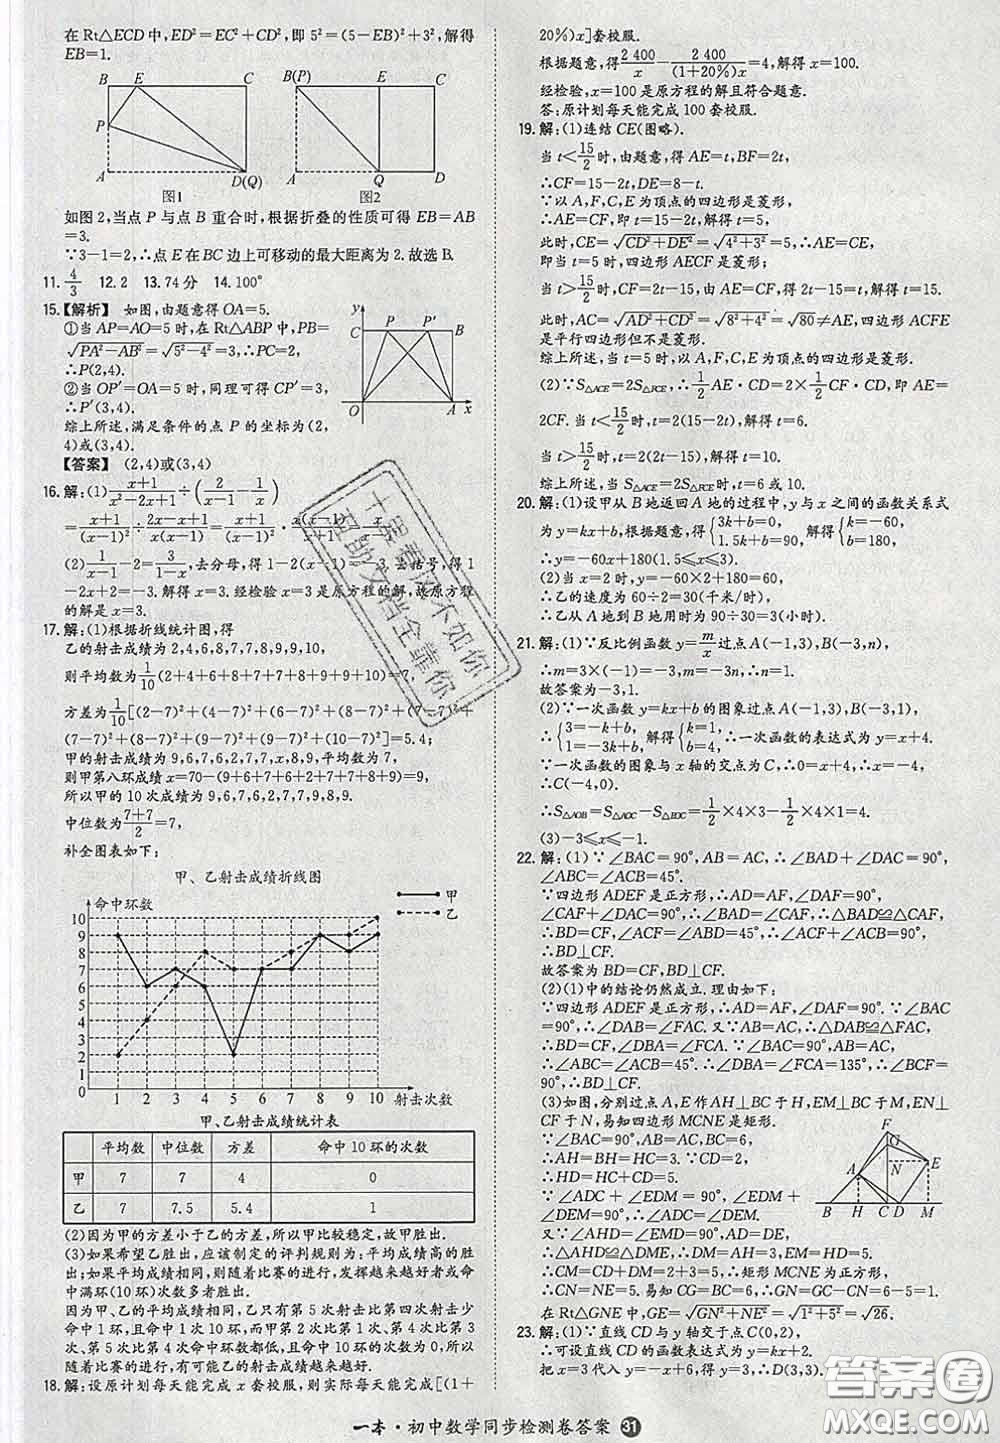 在Rt△ECD中,ED²=EC²+CD²,即5²=(5-EB)²+3²,解得
EB=1.
B E C
P
A D(Q)
图1
B(P) E C
A Q D
图2
如图2,当点P与点B重合时,根据折叠的性质可得EB=AB
=3.
∵3-1=2,∴点E在BC边上可移动的最大距离为2.故选B.
11. 4/3 12. 2 13. 74分 14. 100°
15.【解析】 如图,由题意得OA=5.
①当AP=AO=5时,在Rt△ABP中,PB=
√(PA²-AB²)=√(5²-4²)=3,∴PC=2,
∴P(2,4).
②当OP′=OA=5时,同理可得CP′=3,
∴P′(3,4).
综上所述,满足条件的点P的坐标为(2,
4)或(3,4).
y
C P P′ B
O A x
【答案】 (2,4)或(3,4)
16. 解:(1) (x+1)/(x²-2x+1)÷(2/(x-1)-1/x)
=(x+1)/(x-1)²÷(2x-x+1)/(x(x-1))=(x+1)/(x-1)²·
(2) 1/(x-1)-2=3/(1-x),去分母,得1-2(x-1)=-3.去括号,得1
-2x+2=-3.解得x=3.经检验x=3是原方程的解,故原方程
的解是x=3.
17. 解:(1)根据折线统计图,得
乙的射击成绩为2,4,6,8,7,7,8,9,9,10,
则平均数为1/10(2+4+6+8+7+7+8+9+9+10)=7,
方差为1/10[(2-7)²+(4-7)²+(6-7)²+(8-7)²+(7-7)²+
(7-7)²+(8-7)²+(9-7)²+(9-7)²+(10-7)²]=5.4;
甲的射击成绩为9,6,7,6,2,7,7,x,8,9,平均数为7,
则甲第八环成绩x=70-(9+6+7+6+2+7+7+8+9)=9,
所以甲的10次成绩为9,6,7,6,2,7,7,9,8,9.
中位数为(7+7)/2=7,
补全图表如下:
甲、乙射击成绩折线图
命中环数
甲
乙
10
9
8
7
6
5
4
3
2
1
0
1 2 3 4 5 6 7 8 9 10 射击次数
甲、乙射击成绩统计表
平均数 中位数 方差 命中10环的次数
甲 7 7 4 0
乙 7 7.5 5.4 1
(2)因为甲的方差小于乙的方差,所以甲比较稳定,故甲胜出.
(3)如果希望乙胜出,应该制定的评判规则为:平均成绩高的胜
出;如果平均成绩相同,则随着比赛的进行,发挥越来越好或命
中满环(10环)次数多者胜出.
因为甲、乙的平均成绩相同,乙只有第5次射击比第四次射击少
命中1环,且命中1次10环,而甲第2次比第1次、第4次比第3
次、第5次比第4次命中环数都低,且命中10环的次数为0,所以
随着比赛的进行,有可能乙的射击成绩越来越好.
18. 解:设原计划每天能完成x套校服,则实际每天能完成[(1+
20%)x]套校服.
根据题意,得2 400/x-2 400/((1+20%)x)=4,解得x=100.
经检验,x=100是原方程的解且符合题意.
答:原计划每天能完成100套校服.
19. 解:(1)连结CE(图略).
当t<15/2时,由题意,得AE=t,BF=2t,
∴CF=15-2t,DE=8-t.
∵以A,F,C,E为顶点的四边形是菱形,
∴AE=CF,即t=15-2t,解得t=5,
此时,CE=√(CD²+DE²)=√(4²+3²)=5,∴AE=CE,
此时,四边形AECF是菱形;
当t>15/2时,CF=2t-15,由题意,得2t-15=t,解得t=15.
此时,AC=√(AD²+CD²)=√(8²+4²)=√80≠AE,四边形ACFE
是平行四边形但不是菱形.
综上所述,当t=5时,以A,F,C,E为顶点的四边形是菱形.
(2)∵S△ACE=2S△FCE,∴1/2AE·CD=2×1/2CF·CD,即AE=
2CF.当t<15/2时,t=2(15-2t),解得t=6.
当t>15/2时,t=2(2t-15),解得t=10.
综上所述,当S△ACE=2S△FCE时,t=6或10.
20. 解:(1)设甲从B地返回A地的过程中,y与x之间的函数关系式
为y=kx+b,根据题意,得{3k+b=0, 1.5k+b=90,解得{k=-60, b=180,
∴y=-60x+180(1.5≤x≤3).
(2)当x=2时,y=-60×2+180=60,
∴乙的速度为60÷2=30(千米/时),
∴乙从A地到B地用时为90÷30=3(小时).
21. 解:(1)∵反比例函数y=m/x过点A(-1,3),B(-3,n),
∴m=3×(-1)=-3,m=-3n,∴n=1.
故答案为-3,1.
(2)∵一次函数y=kx+b的图象过点A(-1,3),B(-3,1),
∴{3=-k+b, 1=-3k+b,解得{k=1, b=4,∴一次函数的表达式为y=x+4.
∵一次函数的图象与x轴的交点为C,∴0=x+4,∴x=-4,
∴C(-4,0),
∴S△AOB=S△AOC-S△BOC=1/2×4×3-1/2×4×1=4.
(3)-3≤x≤-1.
22. 解:(1)∵∠BAC=90°,AB=AC,∴∠BAD+∠DAC=90°,
∠ABC=∠ACB=45°.
∵四边形ADEF是正方形,∴AD=AF,∠DAF=90°,
∠CAF+∠DAC=90°,∴∠BAD=∠CAF,∴△BAD≌△CAF,
∴BD=CF,∠ACF=∠ABD=45°,∴∠ACF+∠ACB=90°,
∴BD⊥CF.
故答案为BD=CF,BD⊥CF.
(2)(1)中的结论仍然成立.理由如下:
∵四边形ADEF是正方形,∴AD=AF,∠DAF=90°.∵∠BAC
=90°,∴∠DAB=∠FAC.又∵AB=AC,∴△DAB≌△FAC,
∴BD=CF,∠DBA=∠FCA.∵∠BAC=90°,AB=AC,
∴∠ABC=∠ACB=45°,∴∠DBA=∠FCA=135°,∴∠BCF
=90°,∴BD⊥CF.
(3)如图,分别过点A,E作AH⊥BC于H,EM⊥BC于M,EN⊥
CF于N,易知四边形MCNE是矩形.
∵∠BAC=90°,AB=AC,AH⊥BC,
∴AH=BH=CH=1/2BC=3,
∴HD=CH+CD=3+2=5.
∵∠ADC+∠EDM=90°,∠EDM+
∠DEM=90°,∴∠ADC=∠DEM.
又∵∠AHD=∠EMD=90°,AD=DE,
F
G
A N E
B H C D M
∴△AHD≌△DME,∴DM=AH=3,EM=HD=5,
∴CM=CD+DM=2+3=5,∴矩形MCNE为正方形,
∴CN=NE=5.易知CG=BC=6,∴GN=GC-CN=6-5=1.
在Rt△GNE中,GE=√(GN²+NE²)=√(1²+5²)=√26.
23. 解:(1)∵直线CD与y轴交于点C(0,2),
∴可设直线CD的函数表达式为y=kx+2.
把x=3代入y=-x+6,得y=3,∴D(3,3).
一本·初中数学同步检测卷答案 31
答案圈
MXQE.COM